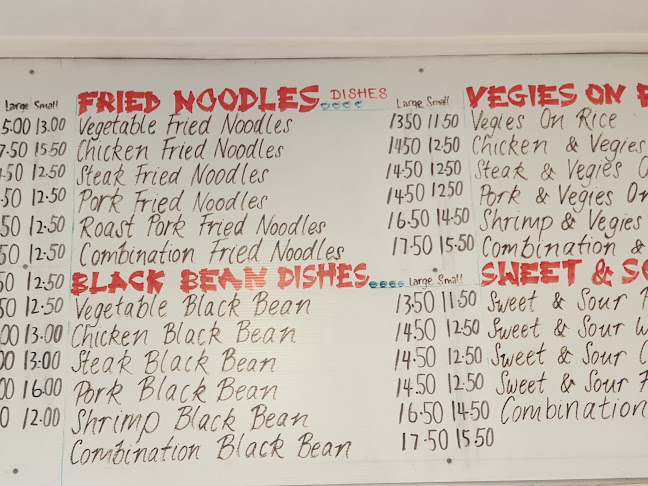 Large Small FRIED NOODLES DISHES Large Small VEGIES ON
5.00 13.00 Vegetable Fried Noodles 13.50 11.50 Vegies On Rice
7.50 15.50 Chicken Fried Noodles 14.50 12.50 Chicken & Vegies
.50 12.50 Steak Fried Noodles 14.50 12.50 Steak & Vegies
.50 12.50 Pork Fried Noodles 14.50 12.50 Pork & Vegies On
.50 12.50 Roast Pork Fried Noodles 16.50 14.50 Shrimp & Vegies
50 12.50 Combination Fried Noodles 17.50 15.50 Combination &
50 12.50 BLACK BEAN DISHES Large Small SWEET & SO
50 12.50 Vegetable Black Bean 13.50 11.50 Sweet & Sour
00 13.00 Chicken Black Bean 14.50 12.50 Sweet & Sour
00 13.00 Steak Black Bean 14.50 12.50 Sweet & Sour
00 16.00 Pork Black Bean 14.50 12.50 Sweet & Sour
0 12.00 Shrimp Black Bean 16.50 14.50 Combination
Combination Black Bean 17.50 15.50